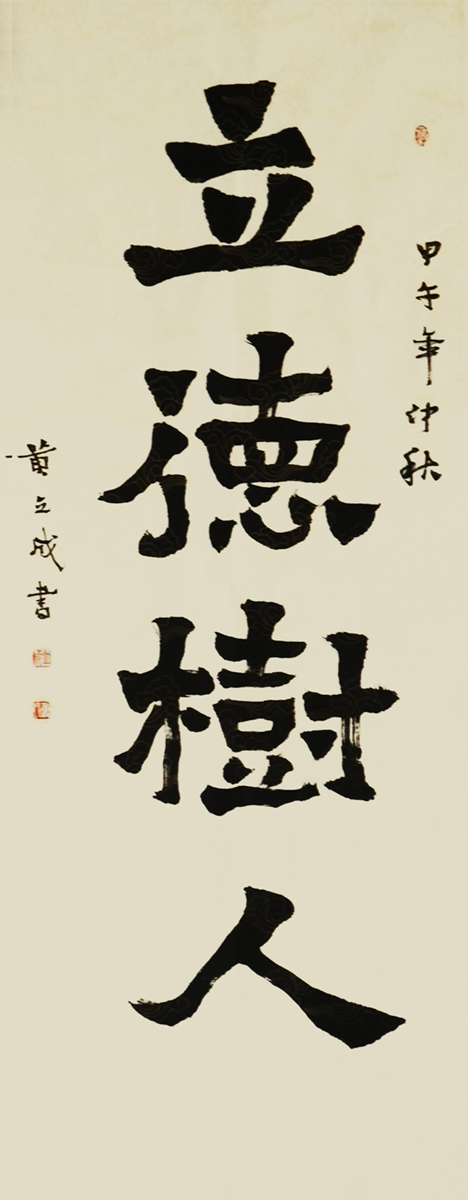 甲午年仲秋
立德樹人
黄立成书